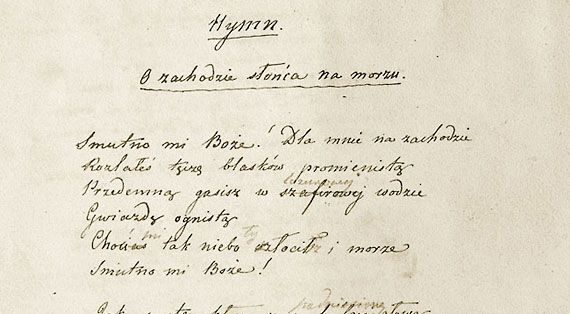 Hymn.
O zachodzie słońca na morzu.
Smutno mi Boże! Dla mnie na zachodzie
Rozlałeś tęczę blasków promienistą
lazurowej
Przedemną gasisz w szafirowej wodzie
Gwiazdę ognistą
mi ty
tak niebo i morze
Smutno mi Boże!